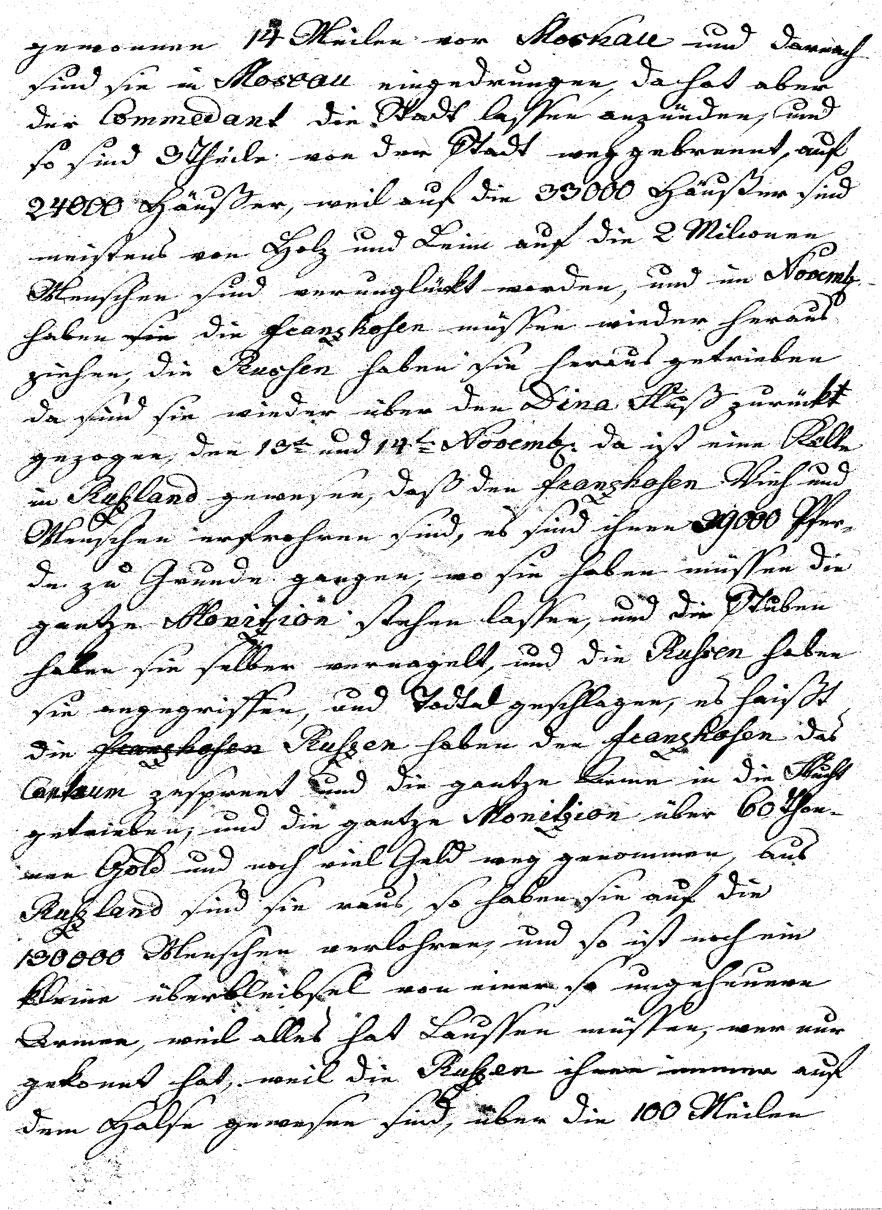 gewonnen 14 Meilen vor Moskau und darnach
sind sie in Moscau eingedrungen, da hat aber
der Commedant die Stadt lassen anzünden, und
so sind 3 Theile von der Stadt weggebrennt, auf
24000 Häußer, weil auf die 33000 Häußer sind
meistens von Holz und Leim auf die 2 Milionen
Menschen sind verunglückt worden, und im Novemb.
haben sie die franzhosen müssen wieder heraus
ziehen, die Russen haben sie heraus getrieben
da sind sie wieder über den Dina Fluß zurückt
gezogen, den 13te und 14te Novemb. da ist eine Kelte
in Rußland gewesen, daß den franzhosen Vieh und
Menschen erfrohren sind, es sind ihnen 39000 Pfer-
de zu Grunde gangen, wo sie haben müssen die
gantze Monizion stehen lassen, und die Stuben
haben sie selber vernagelt, und die Russen haben
sie angegriffen, und Todtal geschlagen, es haißt
die franzhosen Rußen haben den franzhosen das
Centrum zesprent und die gantze Arme in die Flucht
getrieben, und die gantze Monizion über 60 Thon-
nen Gold und noch viel Geld weg genommen, aus
Rußland sind sie raus, so haben sie auf die
130000 Menschen verlohren, und so ist noch ein
kleine überbleibsel von einer so ungeheuern
Armee, weil alles hat Laussen müssen, wer nur
gekonnt hat, weil die Rußen ihnen immer auf
dem Halse gewesen sind, über die 100 Meilen